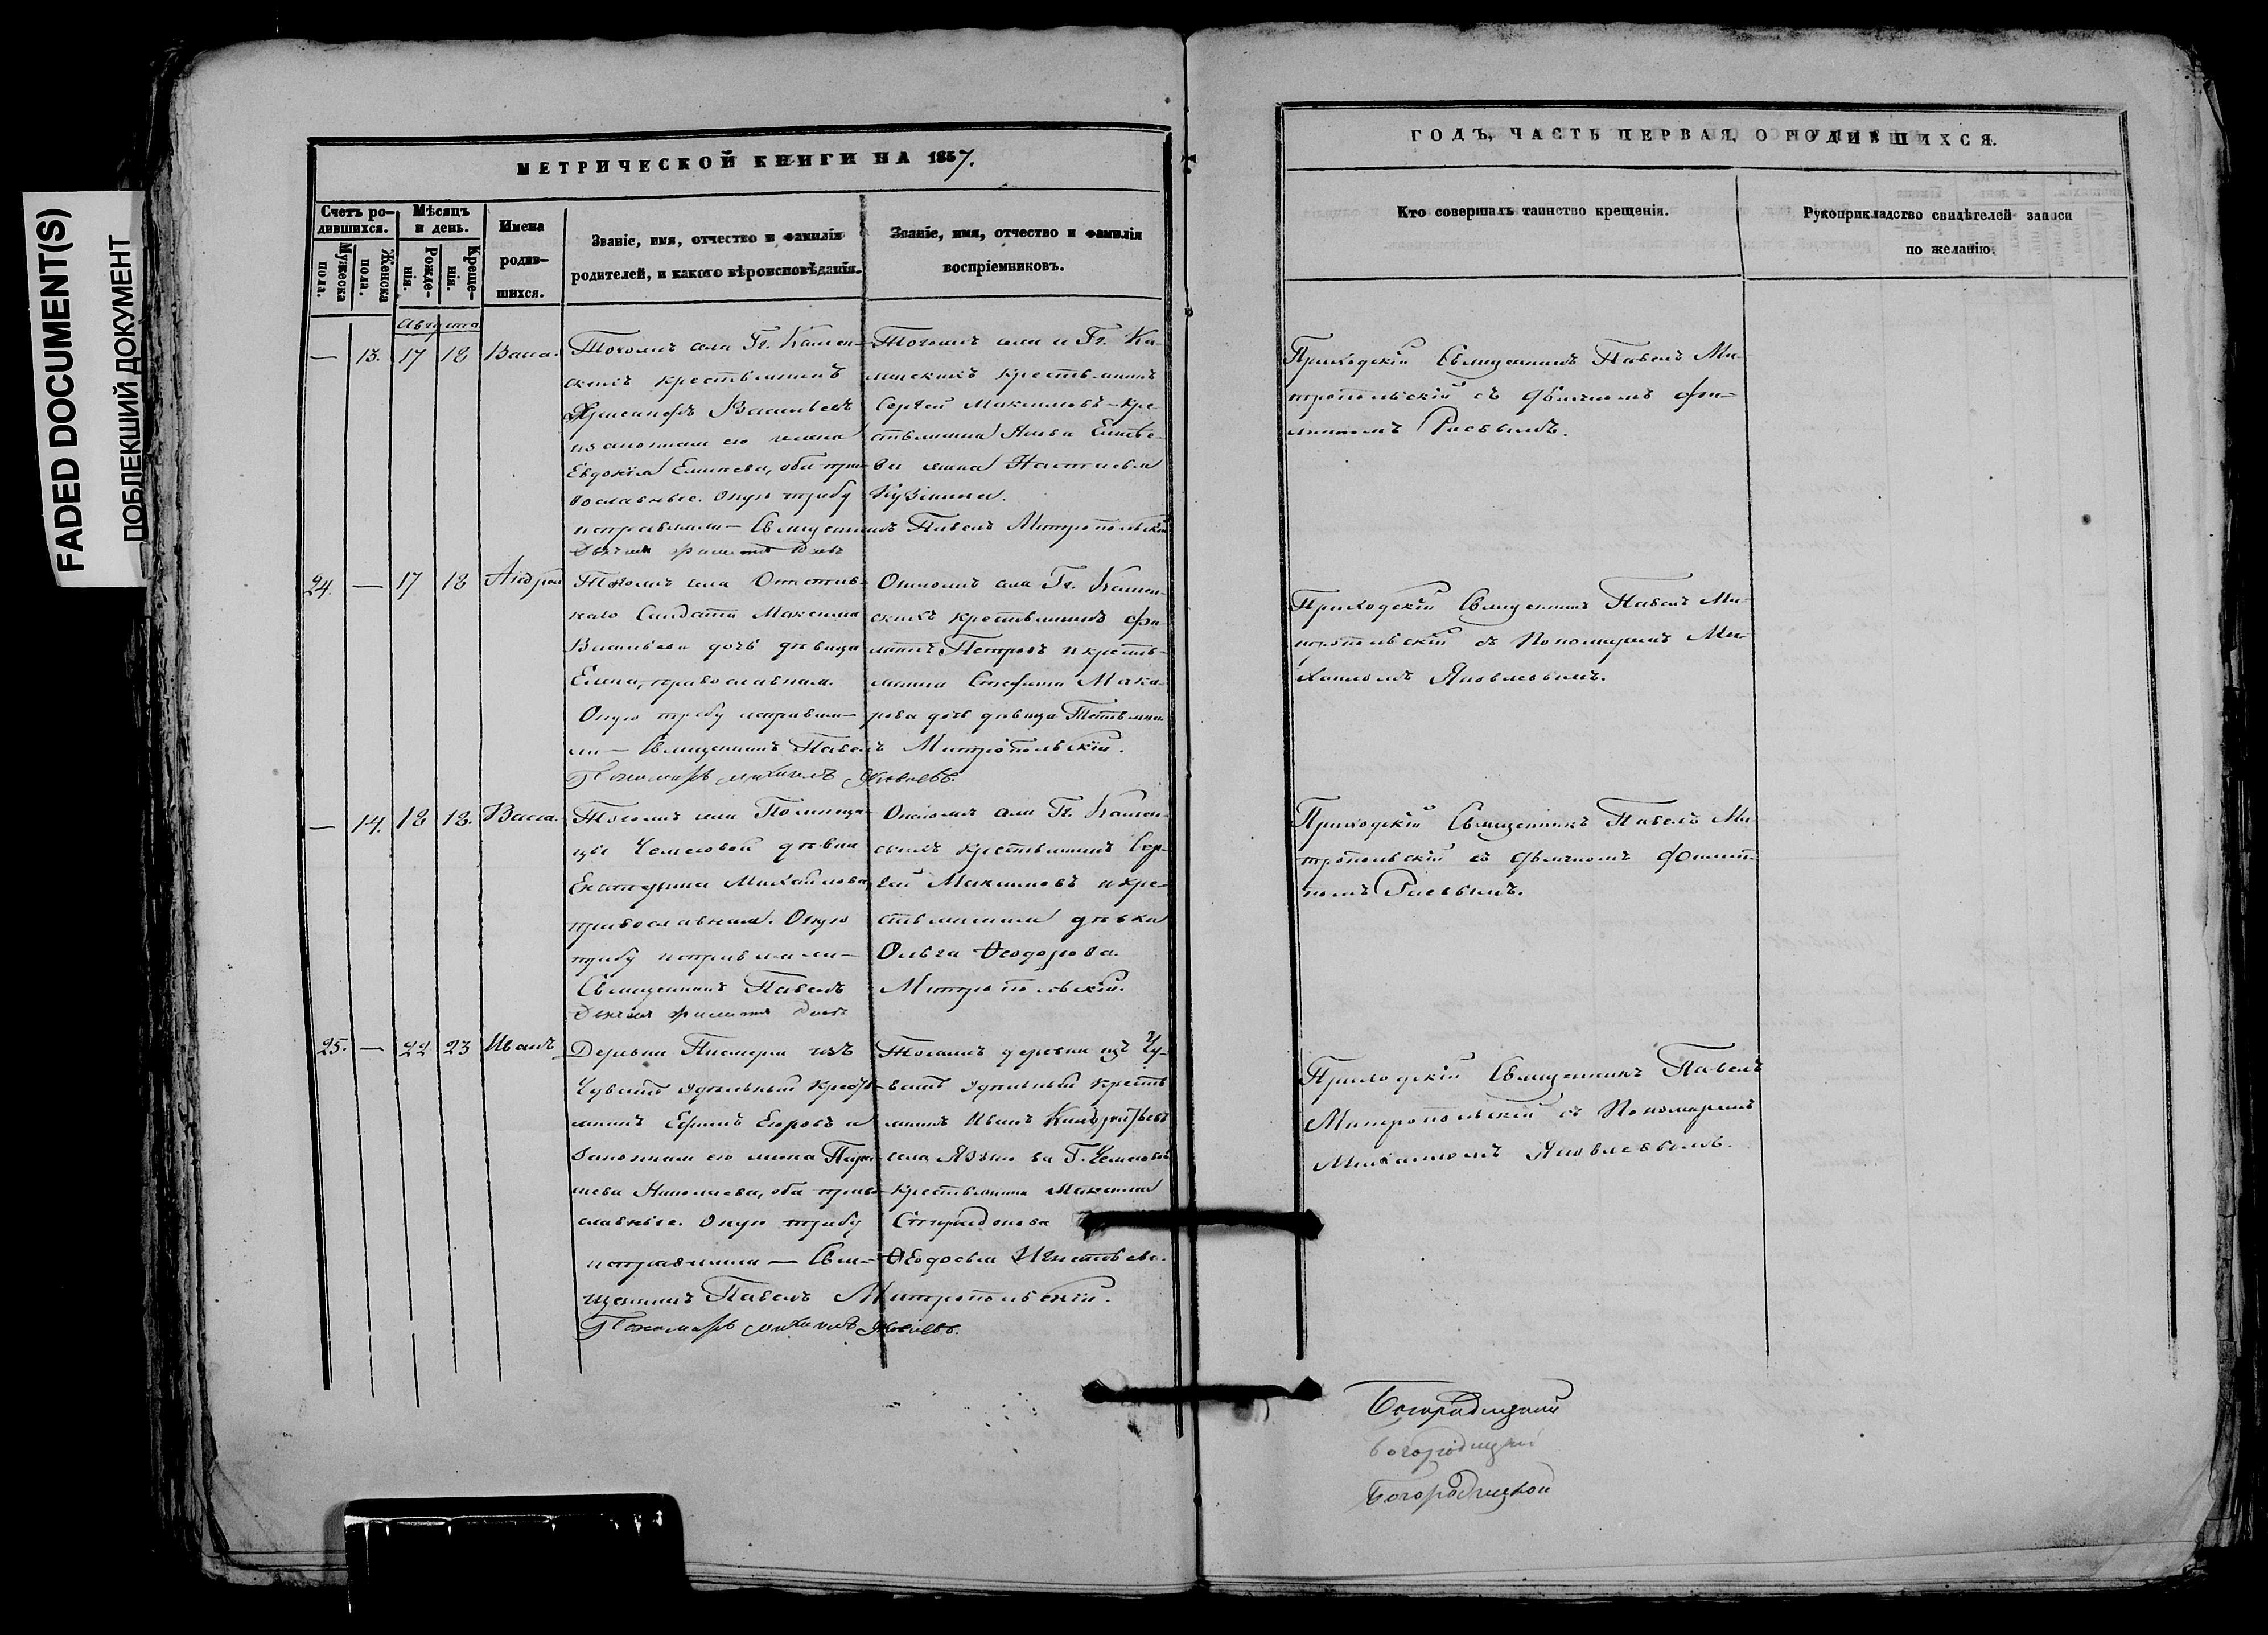 FADED DOCUMENT(S)
ПОБЛЕКШИЙ ДОКУМЕНТ
МЕТРИЧЕСКОЙ КНИГИ НА 1857.
Счетъ ро-
дившихся.
Мужеска
пола.
Женска
пола.
Мѣсяцъ
и день.
Рожде-
нія.
Креще-
нія.
Имена
родив-
шихся.
Званіе, имя, отчество и фамилія
родителей, и какого вѣроисповѣданія.
Званіе, имя, отчество и фамилія
воспріемниковъ.
Августа
— 13. 17 18 Васса.
Тогожъ села Гг. Камен-
скихъ крестьянинъ
Васильевъ
законная его жена
Евдокія оба пра-
вославные. Оную требу
исправляли — Священникъ Павелъ Митропольскій
Тогожъ села и Гг. Ка-
менскихъ крестьянинъ
Сергей Максимовъ — кре-
стьянина Якова
ва жена Настасья
Кузмина.
24. — 17 18 Андрей
Тогожъ села Отстав-
наго Солдата Максима
Васильева дочь девица
Елена, православная.
Оную требу исправля-
ли — Священникъ Павелъ Митропольскій.
Пономарь Михаилъ Яковлевъ.
Онагожъ села Гг. Камен-
скихъ крестьянинъ Фи-
липпъ Петровъ и кресть-
янина Стефана Мака-
рова дочь девица Татьяна
— 14. 18 18. Васса.
Тогожъ села Помещи-
цы Чемесовой девка
Екатерина Михайлова,
православная. Оную
требу исправляли —
Священникъ Павелъ Митропольскій.
Онагожъ села Гг. Камен-
скихъ крестьянинъ Сер-
гей Максимовъ и кре-
стьянина девка
Ольга Ѳеодорова.
25. — 22 23 Иванъ
Деревни изъ
Чувашъ Удельный кресть-
янинъ Ефимъ Егоровъ и
законная его жена Пара-
скева Николаева, оба право-
славные. Оную требу
исправляли — Свя-
щенникъ Павелъ Митропольскій.
Пономарь Михаилъ Яковлевъ.
Тогожъ деревни изъ Чу-
вашъ Удельный кресть-
янинъ Иванъ Кондратьевъ
села Г. Чемесова
крестьянина Максима
Спиридонова
Ѳеодосья Игнатьева.
ГОДЪ, ЧАСТЬ ПЕРВАЯ, О РОДИВШИХСЯ.
Кто совершалъ таинство крещенія.
Рукоприкладство свидѣтелей записи
по желанію.
Приходскій Священникъ Павелъ Ми-
тропольскій съ Дьячкомъ Фи-
липпомъ
Приходскій Священникъ Павелъ Ми-
тропольскій съ Пономаремъ Ми-
хаиломъ Яковлевымъ.
Приходскій Священникъ Павелъ Ми-
тропольскій съ Дьячкомъ Филип-
помъ
Приходскій Священникъ Павелъ
Митропольскій съ Пономаремъ
Михаиломъ Яковлевымъ.
Богородицкий
богородицкий
Богородицкой